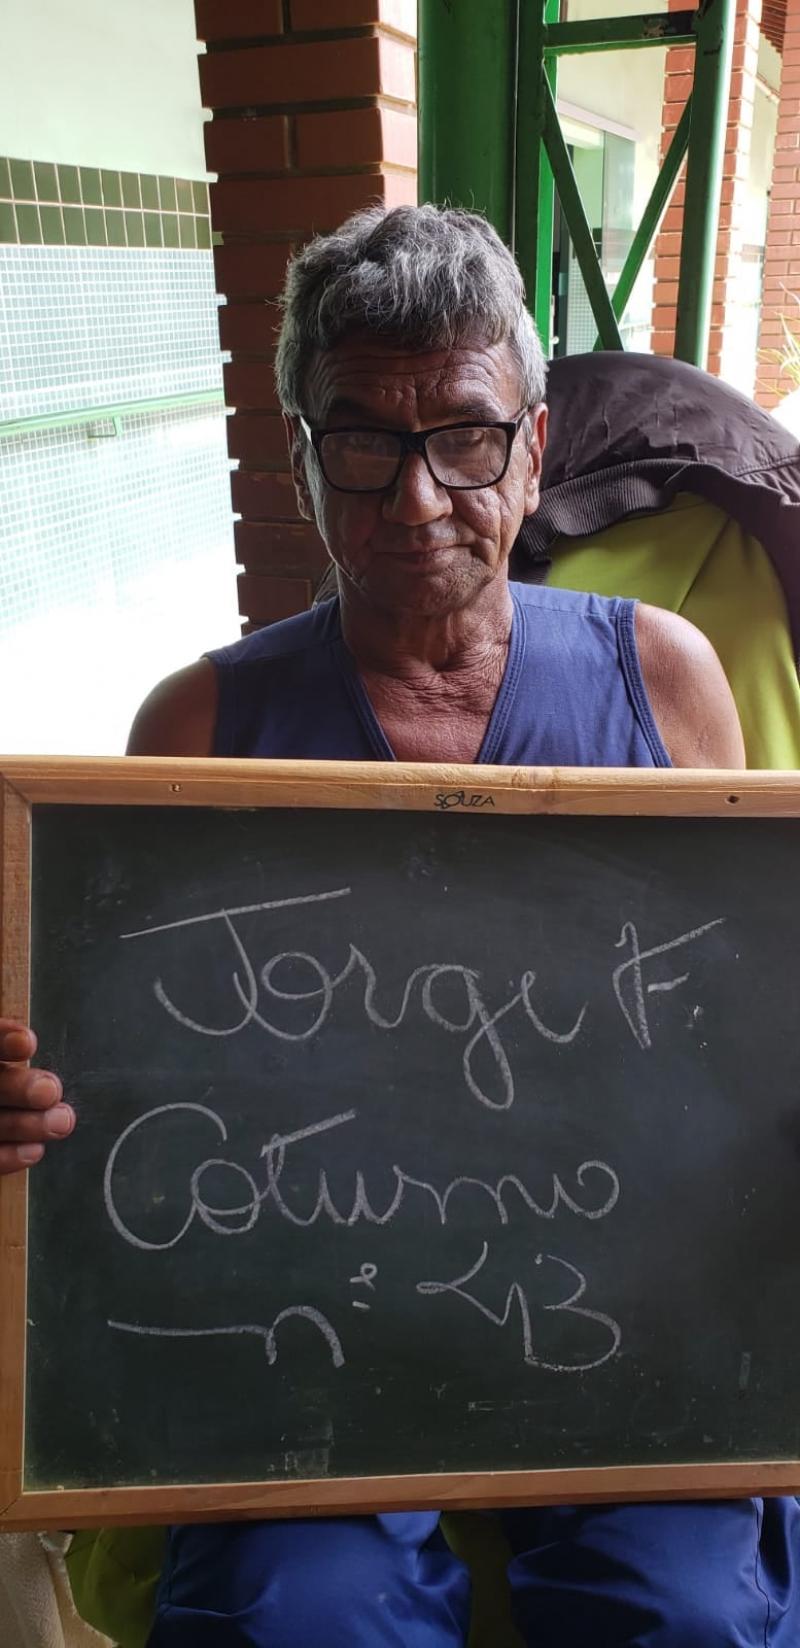 SOUZA
Jorge F.
Coturno
nº 43